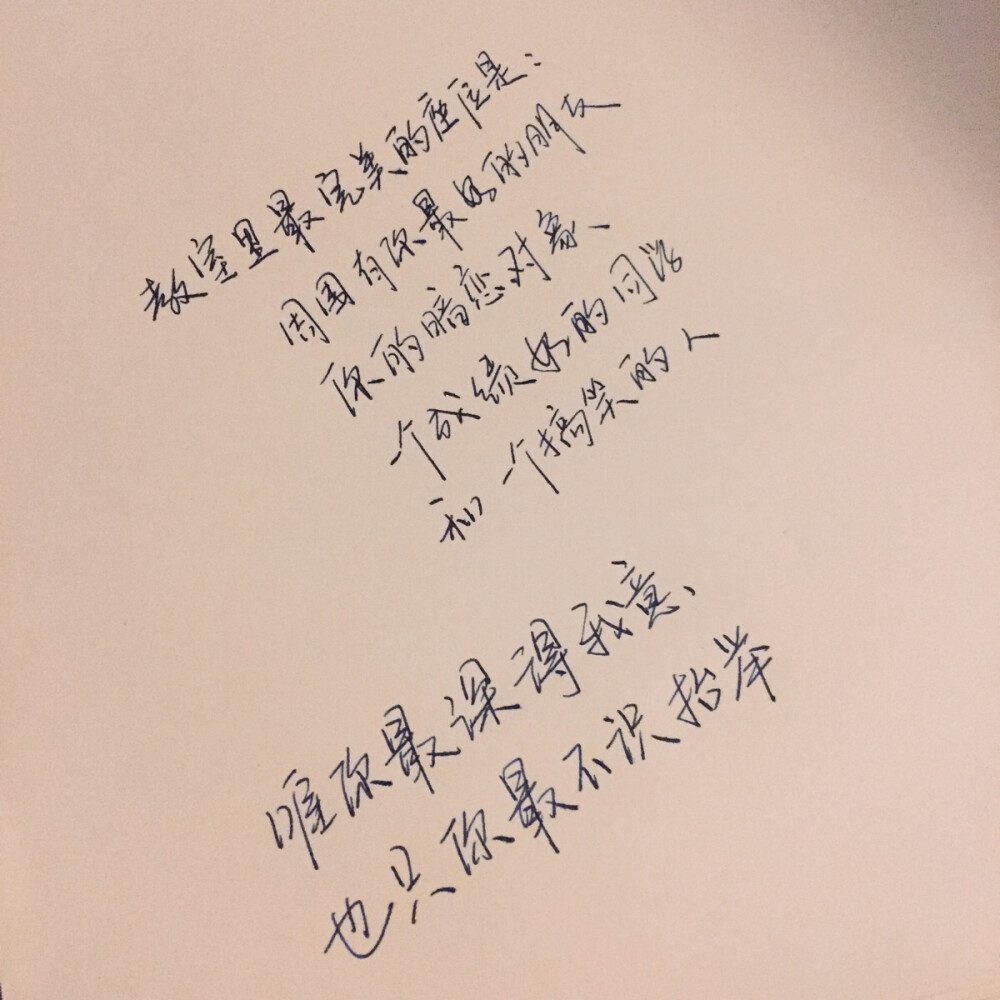 教室里最完美的座位是：
周围有你最好的朋友
你的暗恋对象、
个成绩好的同学
和一个搞笑的人
唯你最深得我意、
也只你最不识抬举